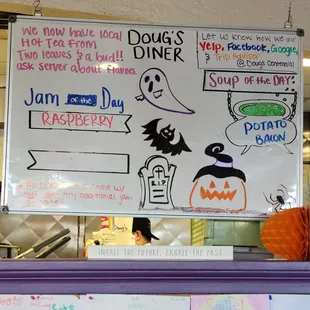 We now have local
Hot Tea From
Two leaves & a bud!!
ask server about flavors
DOUG'S
DINER
Let us know how we are
Yelp, Facebook, Google,
& Trip Advisor
@Dougs Centennial
Jam of the Day
RASPBERRY
SOUP OF THE DAY:
POTATO
BACON
RIP
INHALE THE FUTURE, EXHALE THE PAST